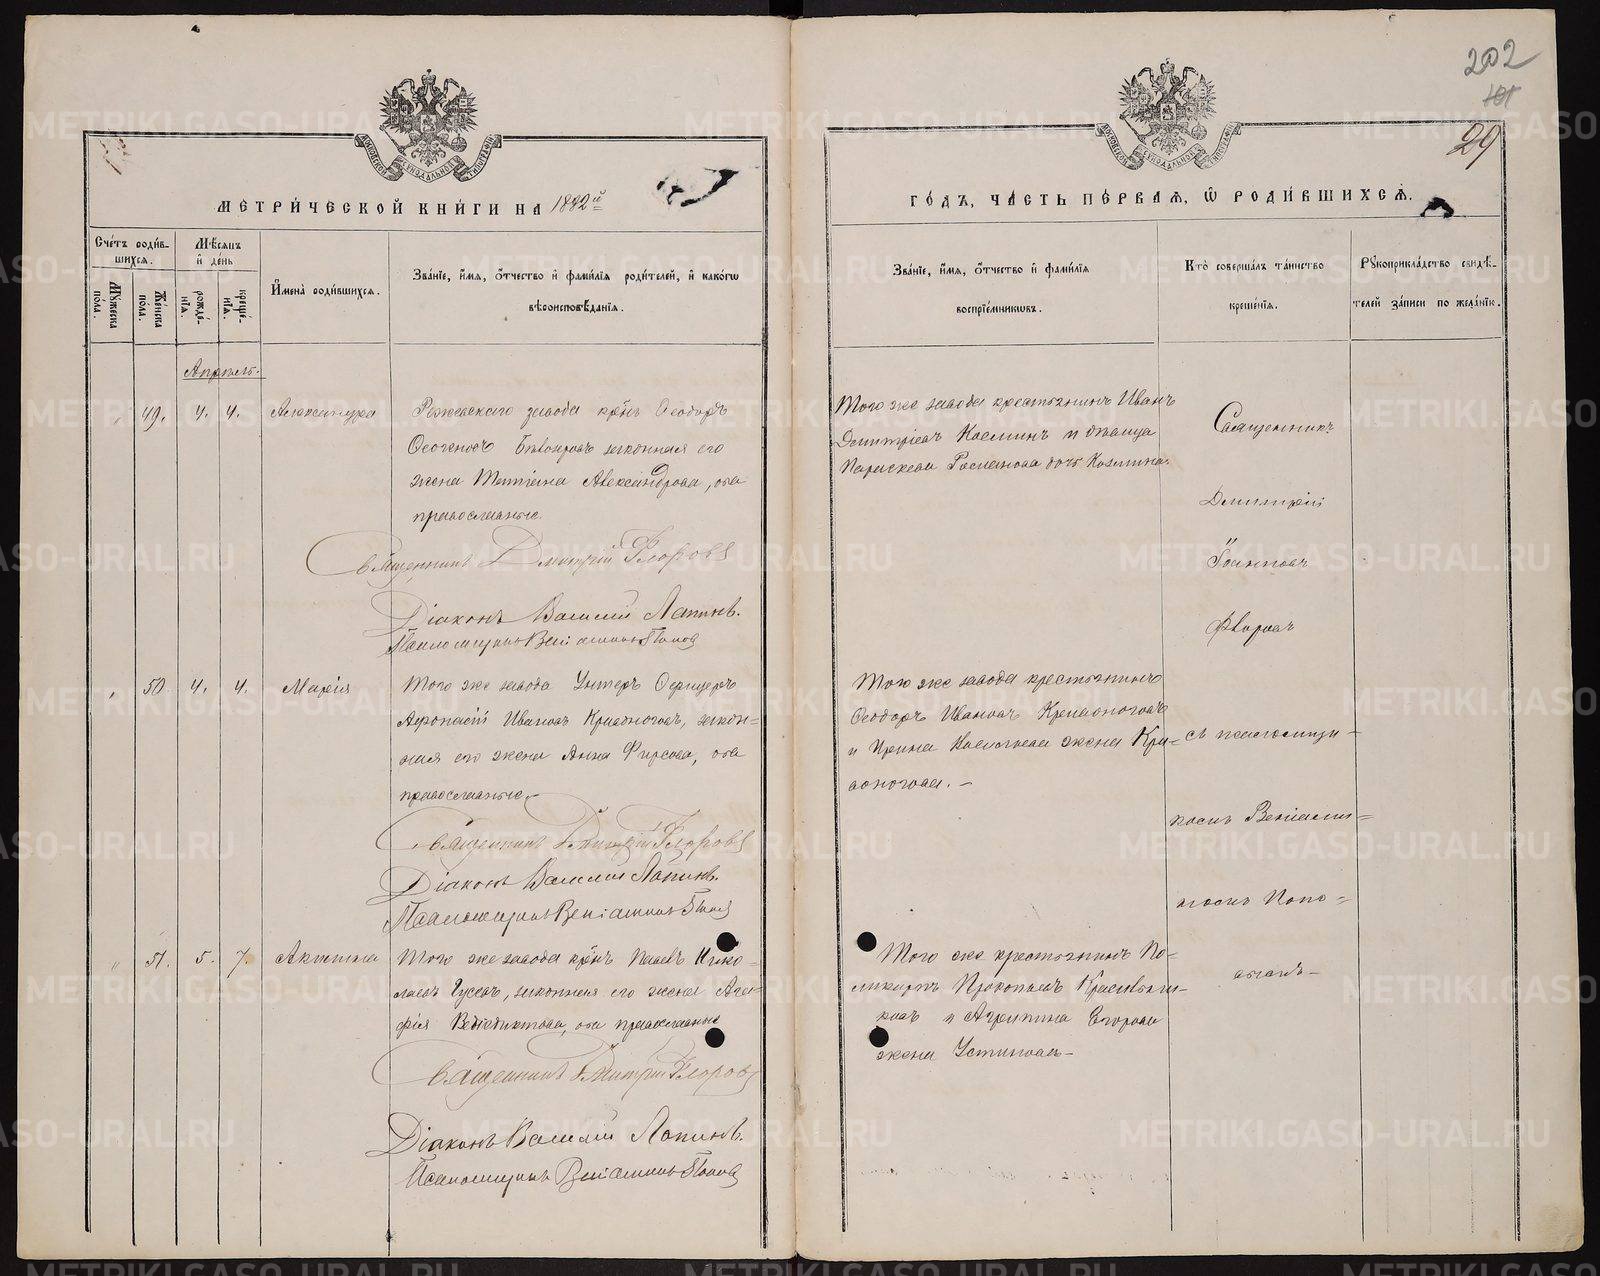 202
101
29
МОСКОВСКОЙ СУНОДАЛЬНОЙ ТИПОГРАФІИ
МОСКОВСКОЙ СУНОДАЛЬНОЙ ТИПОГРАФІИ
МЕТРИ́ЧЕСКОЙ КНИ́ГИ НА 1882й
ГО́ДЪ, ЧА́СТЬ ПЕ́РВАЯ, Ѡ РОДИ́ВШИХСЯ.
Сче́тъ роди́в-
шихся.
Мѣ́сяцъ
и де́нь
Му́жеска
по́ла.
Же́нска
по́ла.
рожде́-
нїя.
креще́-
нїя.
И҆мена̀ роди́вшихся.
Зва́нїе, и҆́мя, ѻ҆́тчество и҆ фами́лїя роди́телей, и҆ како́гѡ
вѣроисповѣ́данїя.
Зва́нїе, и҆́мя, ѻ҆́тчество и҆ фами́лїя
воспрїе́мникѡвъ.
Кто̀ соверша́лъ та́инство
креще́нїя.
Рꙋкоприкла́дство свидѣ́-
телей за́писи по жела́нїю.
Апрѣль.
49. 4. 4. Александра
Режевскаго завода крнъ Ѳеодоръ
законная его
жена Татіана Александрова, оба
православные.
Священникъ Дмитрій Флоровъ
Діаконъ Василій Лапинъ.
Псаломщикъ Веніаминъ Поповъ
Того же завода крестьянинъ Иванъ
Димитріевъ Косминъ и дѣвица
Параскева Романова дочь Козмина.
Священникъ
Димитрій
Флоровъ
50. 4. 4. Марія
Того же завода Унтеръ Офицеръ
Аѳонасій Ивановъ Кривоноговъ, закон=
ная его жена Анна Фирсова, оба
православные.
Священникъ Дмитрій Флоровъ
Діаконъ Василій Лапинъ.
Псаломщикъ Веніаминъ Поповъ
Того же завода крестьянинъ
Ѳеодоръ Ивановъ Кривоноговъ
и Ирина Васильева жена Кри=
воногова. –
съ псаломщи-
комъ Веніами=
номъ Попо=
вымъ –
51. 5. 7. Акилина
Того же завода крнъ Павелъ Нико-
лаевъ Гусевъ, законная его жена Ага-
фія Венедиктова, оба православные
Священникъ Дмитрій Флоровъ
Діаконъ Василій Лапинъ.
Псаломщикъ Веніаминъ Поповъ
Того же крестьянинъ По-
ликарпъ Прокопьевъ
и Агрипина Егорова
жена Устинова –
METRIKI.GASO-URAL.RU